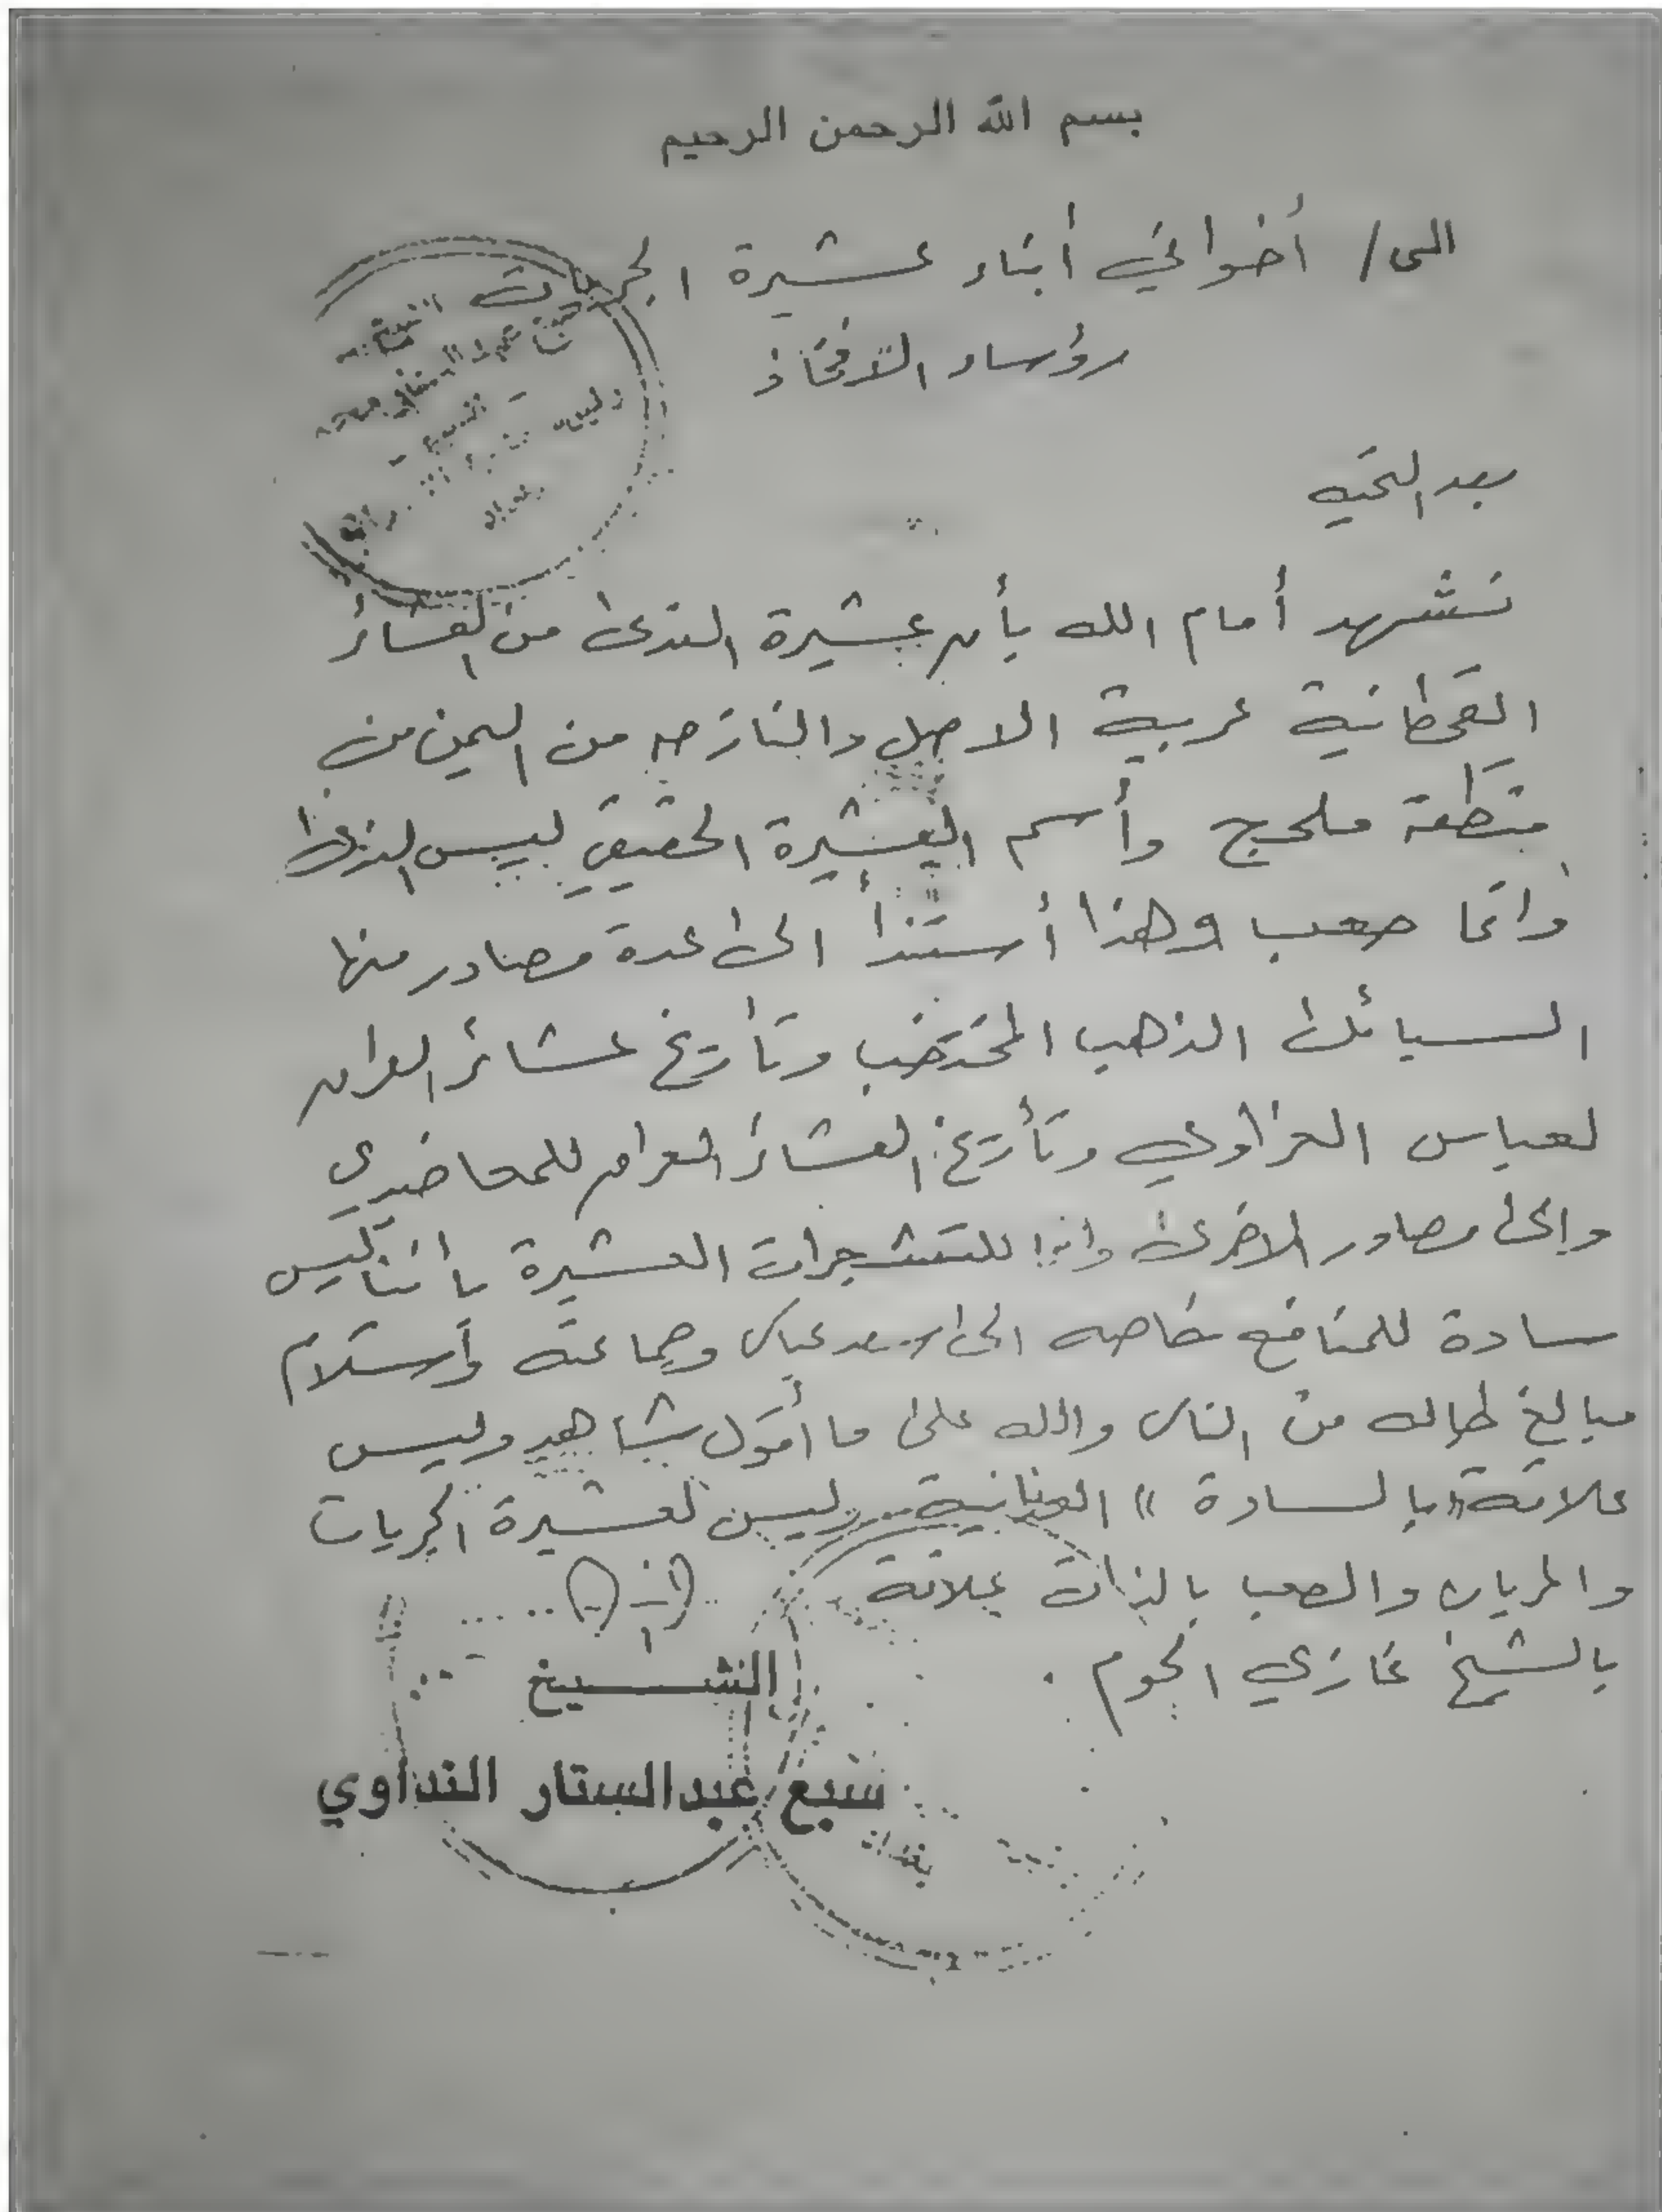 بسم الله الرحمن الرحيم
الى/ أخواني أبناء عشيرة
رؤساء الافخاذ
بعد التحيه
نشهد أمام الله بأن عشيرة الندى من العشائر
القحطانية عربية الاصل والنازحه من اليمن من
منطقة ملحج وأسم العشيرة الحقيقي ليس الندى
وانما صعب وهذا أستنداً الى عدة مصادر منها
السبائك الذهب وتأريخ عشائر العراق
لعباس العزاوي وتأريخ العشائر العراق للمعاضيدي
والى مصادر الاخرى العشيرة بأننا ليس
سادة للمنافع خاصه الى سعد عباس وجماعته وأستلام
مبالغ طماله من الناس والله على ما أقول شاهد وليس
علاقة «بالسادة» وليس لعشيرة
والصعب بالذات علاقة
بالشيخ غازي
الشيخ
سبع عبدالستار النداوي
بغداد